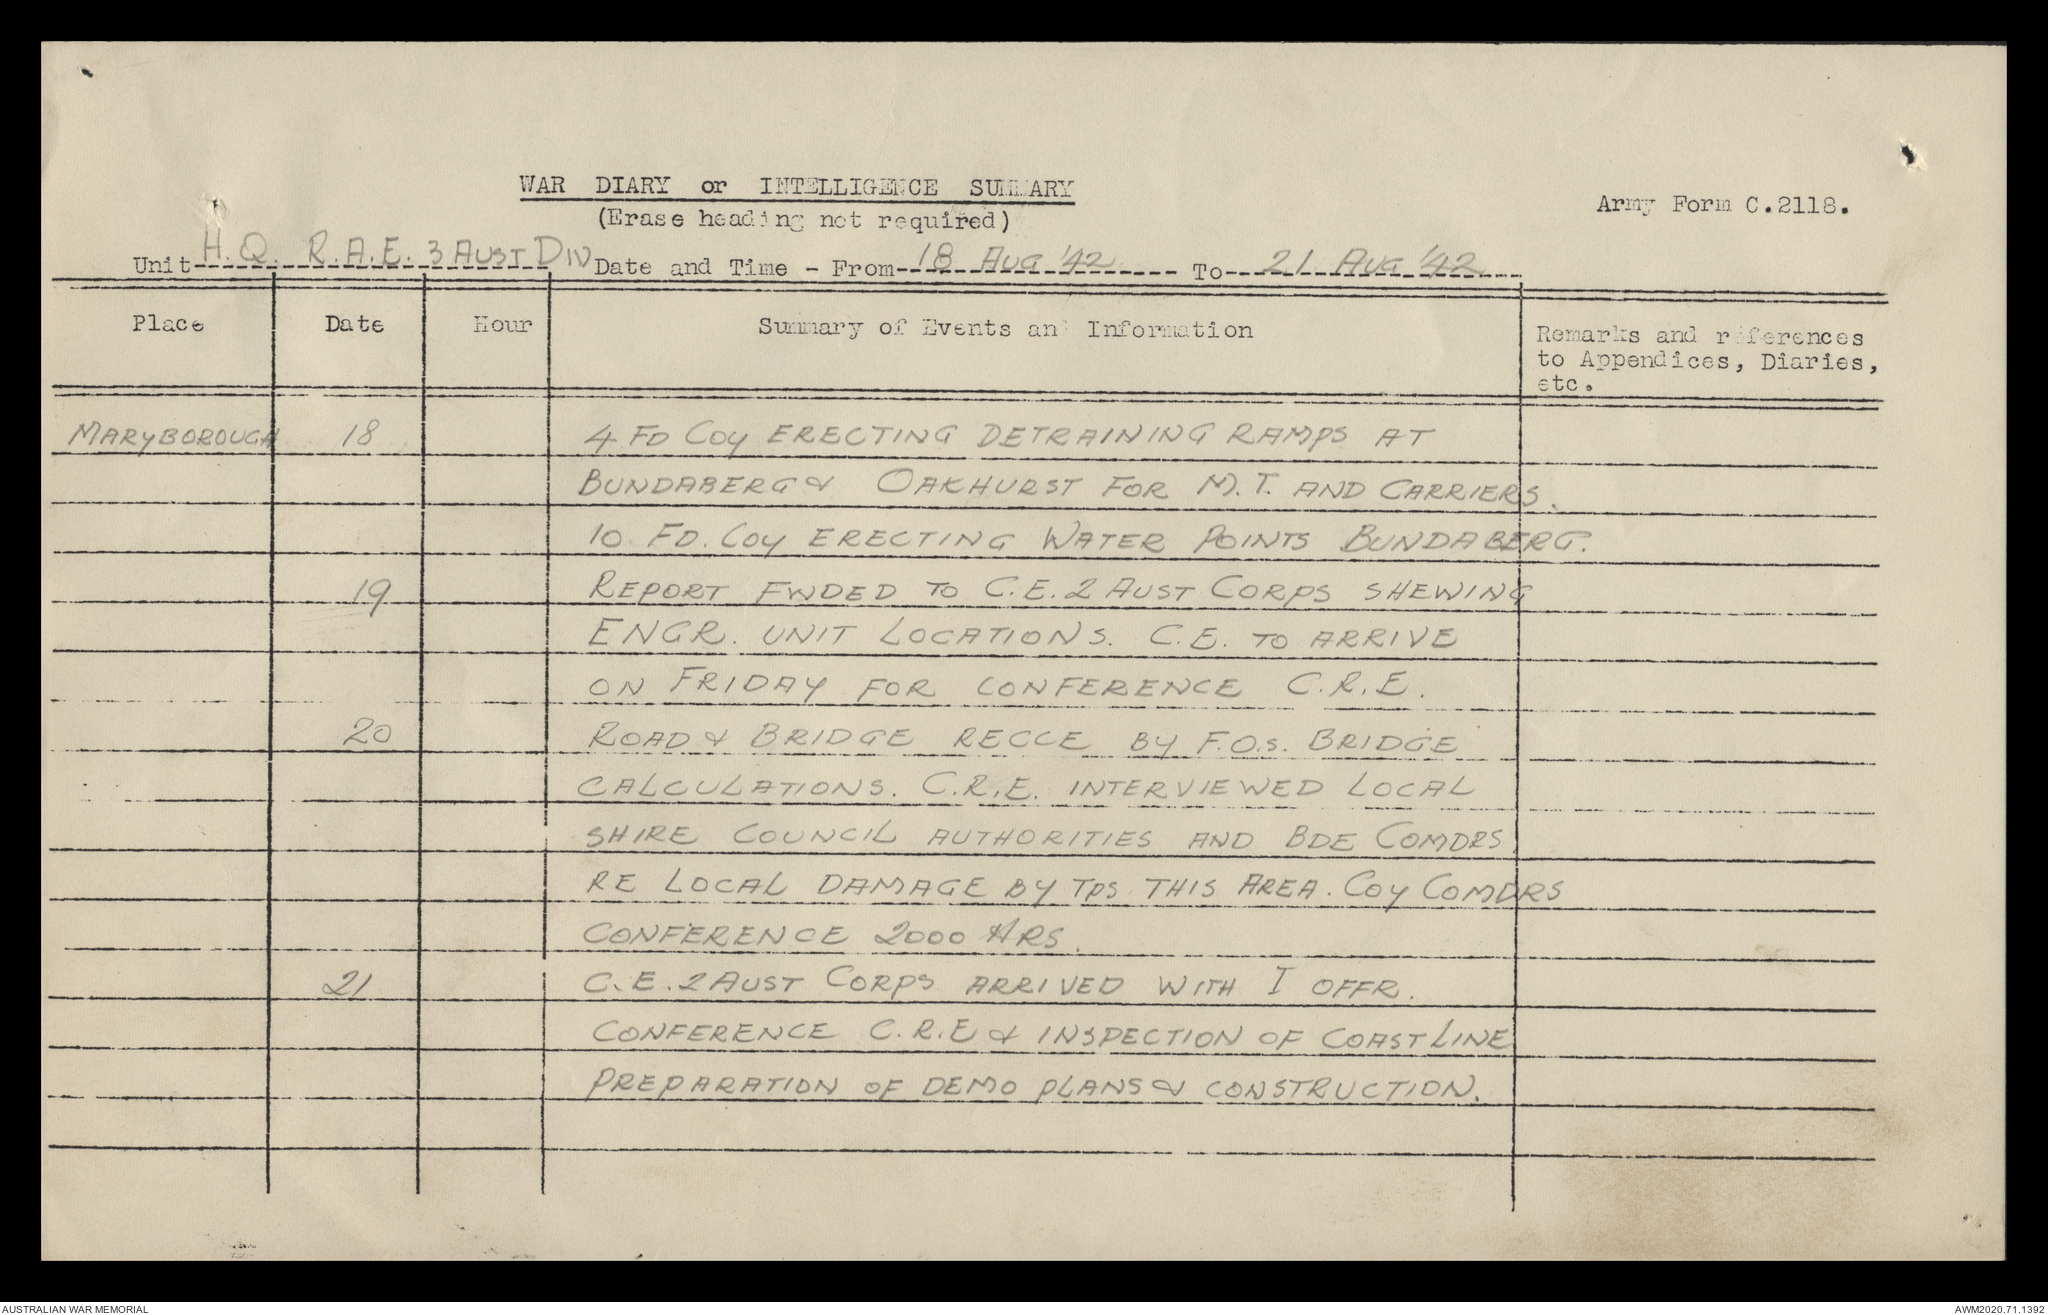 WAR DIARY or INTELLIGENCE SUMMARY
(Erase heading not required)
Army Form C.2118.
Unit H.Q. R.A.E. 3 AUST DIV Date and Time - From 18 AUG '42 To 21 AUG '42
Place Date Hour Summary of Events and Information Remarks and references
to Appendices, Diaries,
etc.
MARYBOROUGH 18 4 FD COY ERECTING DETRAINING RAMPS AT
BUNDABERG & OAKHURST FOR M.T. AND CARRIERS.
10 FD. COY ERECTING WATER POINTS BUNDABERG.
19 REPORT FWDED TO C.E. 2 AUST CORPS SHEWING
ENGR. UNIT LOCATIONS. C.E. TO ARRIVE
ON FRIDAY FOR CONFERENCE C.R.E.
20 ROAD & BRIDGE RECCE BY F.O.s. BRIDGE
CALCULATIONS. C.R.E. INTERVIEWED LOCAL
SHIRE COUNCIL AUTHORITIES AND BDE COMDRS
RE LOCAL DAMAGE BY TPS THIS AREA. COY COMDRS
CONFERENCE 2000 HRS.
21 C.E. 2 AUST CORPS ARRIVED WITH I OFFR.
CONFERENCE C.R.E & INSPECTION OF COAST LINE
PREPARATION OF DEMO PLANS & CONSTRUCTION.
AUSTRALIAN WAR MEMORIAL
AWM2020.71.1392